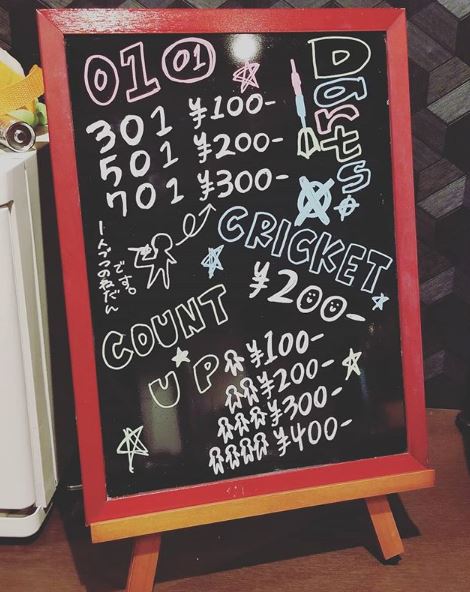 01 01
Darts
301 ¥100-
501 ¥200-
701 ¥300-
1人プレイのねだん
です。
CRICKET
¥200-
COUNT
UP
¥100-
¥200-
¥300-
¥400-